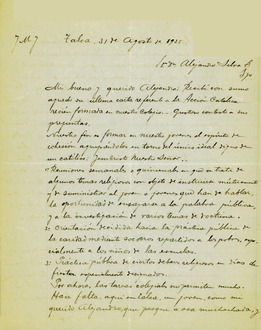 Talca, 31 de Agosto de 1915
Sr Dn Alejandro Silva B
Stgo
Mi bueno y querido Alejandro: Recibí con sumo
agrado su última carta referente a la Acción Católica
recién formada en nuestro Colegio. Gustoso contesto a sus
preguntas.
Nuestro fin es formar en nuestros jóvenes el espíritu de
cohesión agrupándolos en torno del único ideal digno de
un católico: Jesucristo Nuestro Señor.
Reuniones semanales o quincenales en que se trata de
algunos temas religiosos con objeto de instruirse mutuamente
y de suministrar al joven o jóvenes que han de hablar
la oportunidad de ensayarse a la palabra pública,
y a la investigación de varios temas de doctrina.
2) Orientación decidida hacia la práctica pública de
la caridad mediante socorros repartidos a los pobres, especialmente
a los niños de las escuelas.
3) Práctica pública de ciertos deberes religiosos en días de
fiestas especialmente designados.
Por ahora, las tareas colegiales no permiten mucho.
Hace falta, aquí en Talca, un joven, como mi
querido Alejandro, que ponga a esa muchachada, y